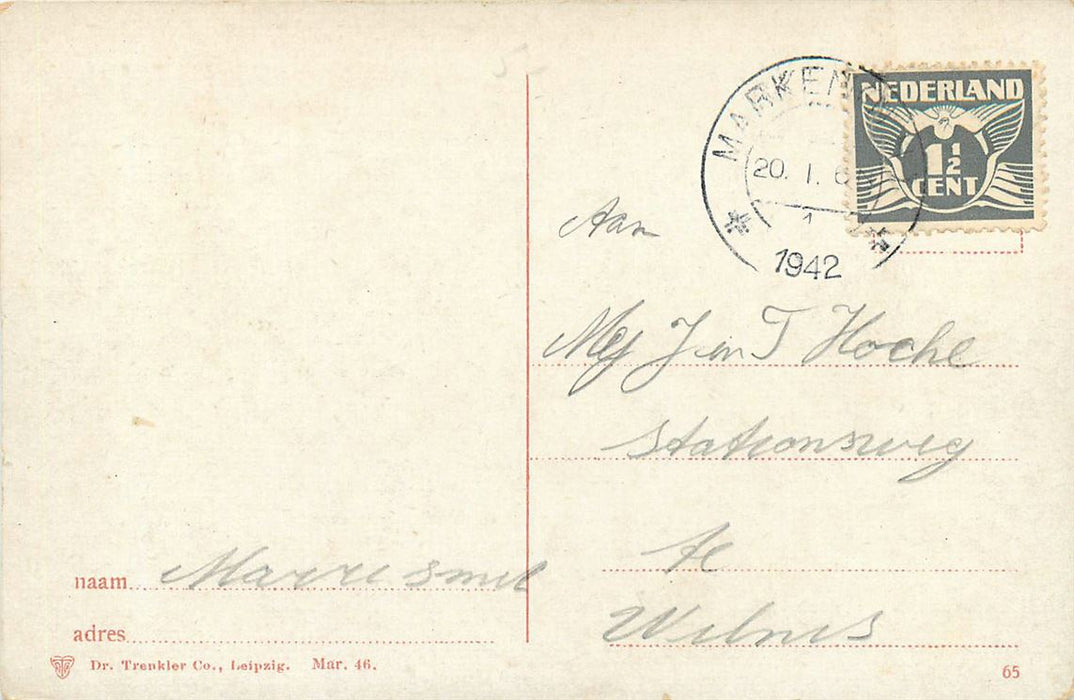 MARKEN
20. 1. 6
1
1942
NEDERLAND
1½
CENT
Aan
Mej J en T Hoche
Stationsweg
te
Wilnis
naam
adres
Dr. Trenkler Co., Leipzig. Mar. 46.
65